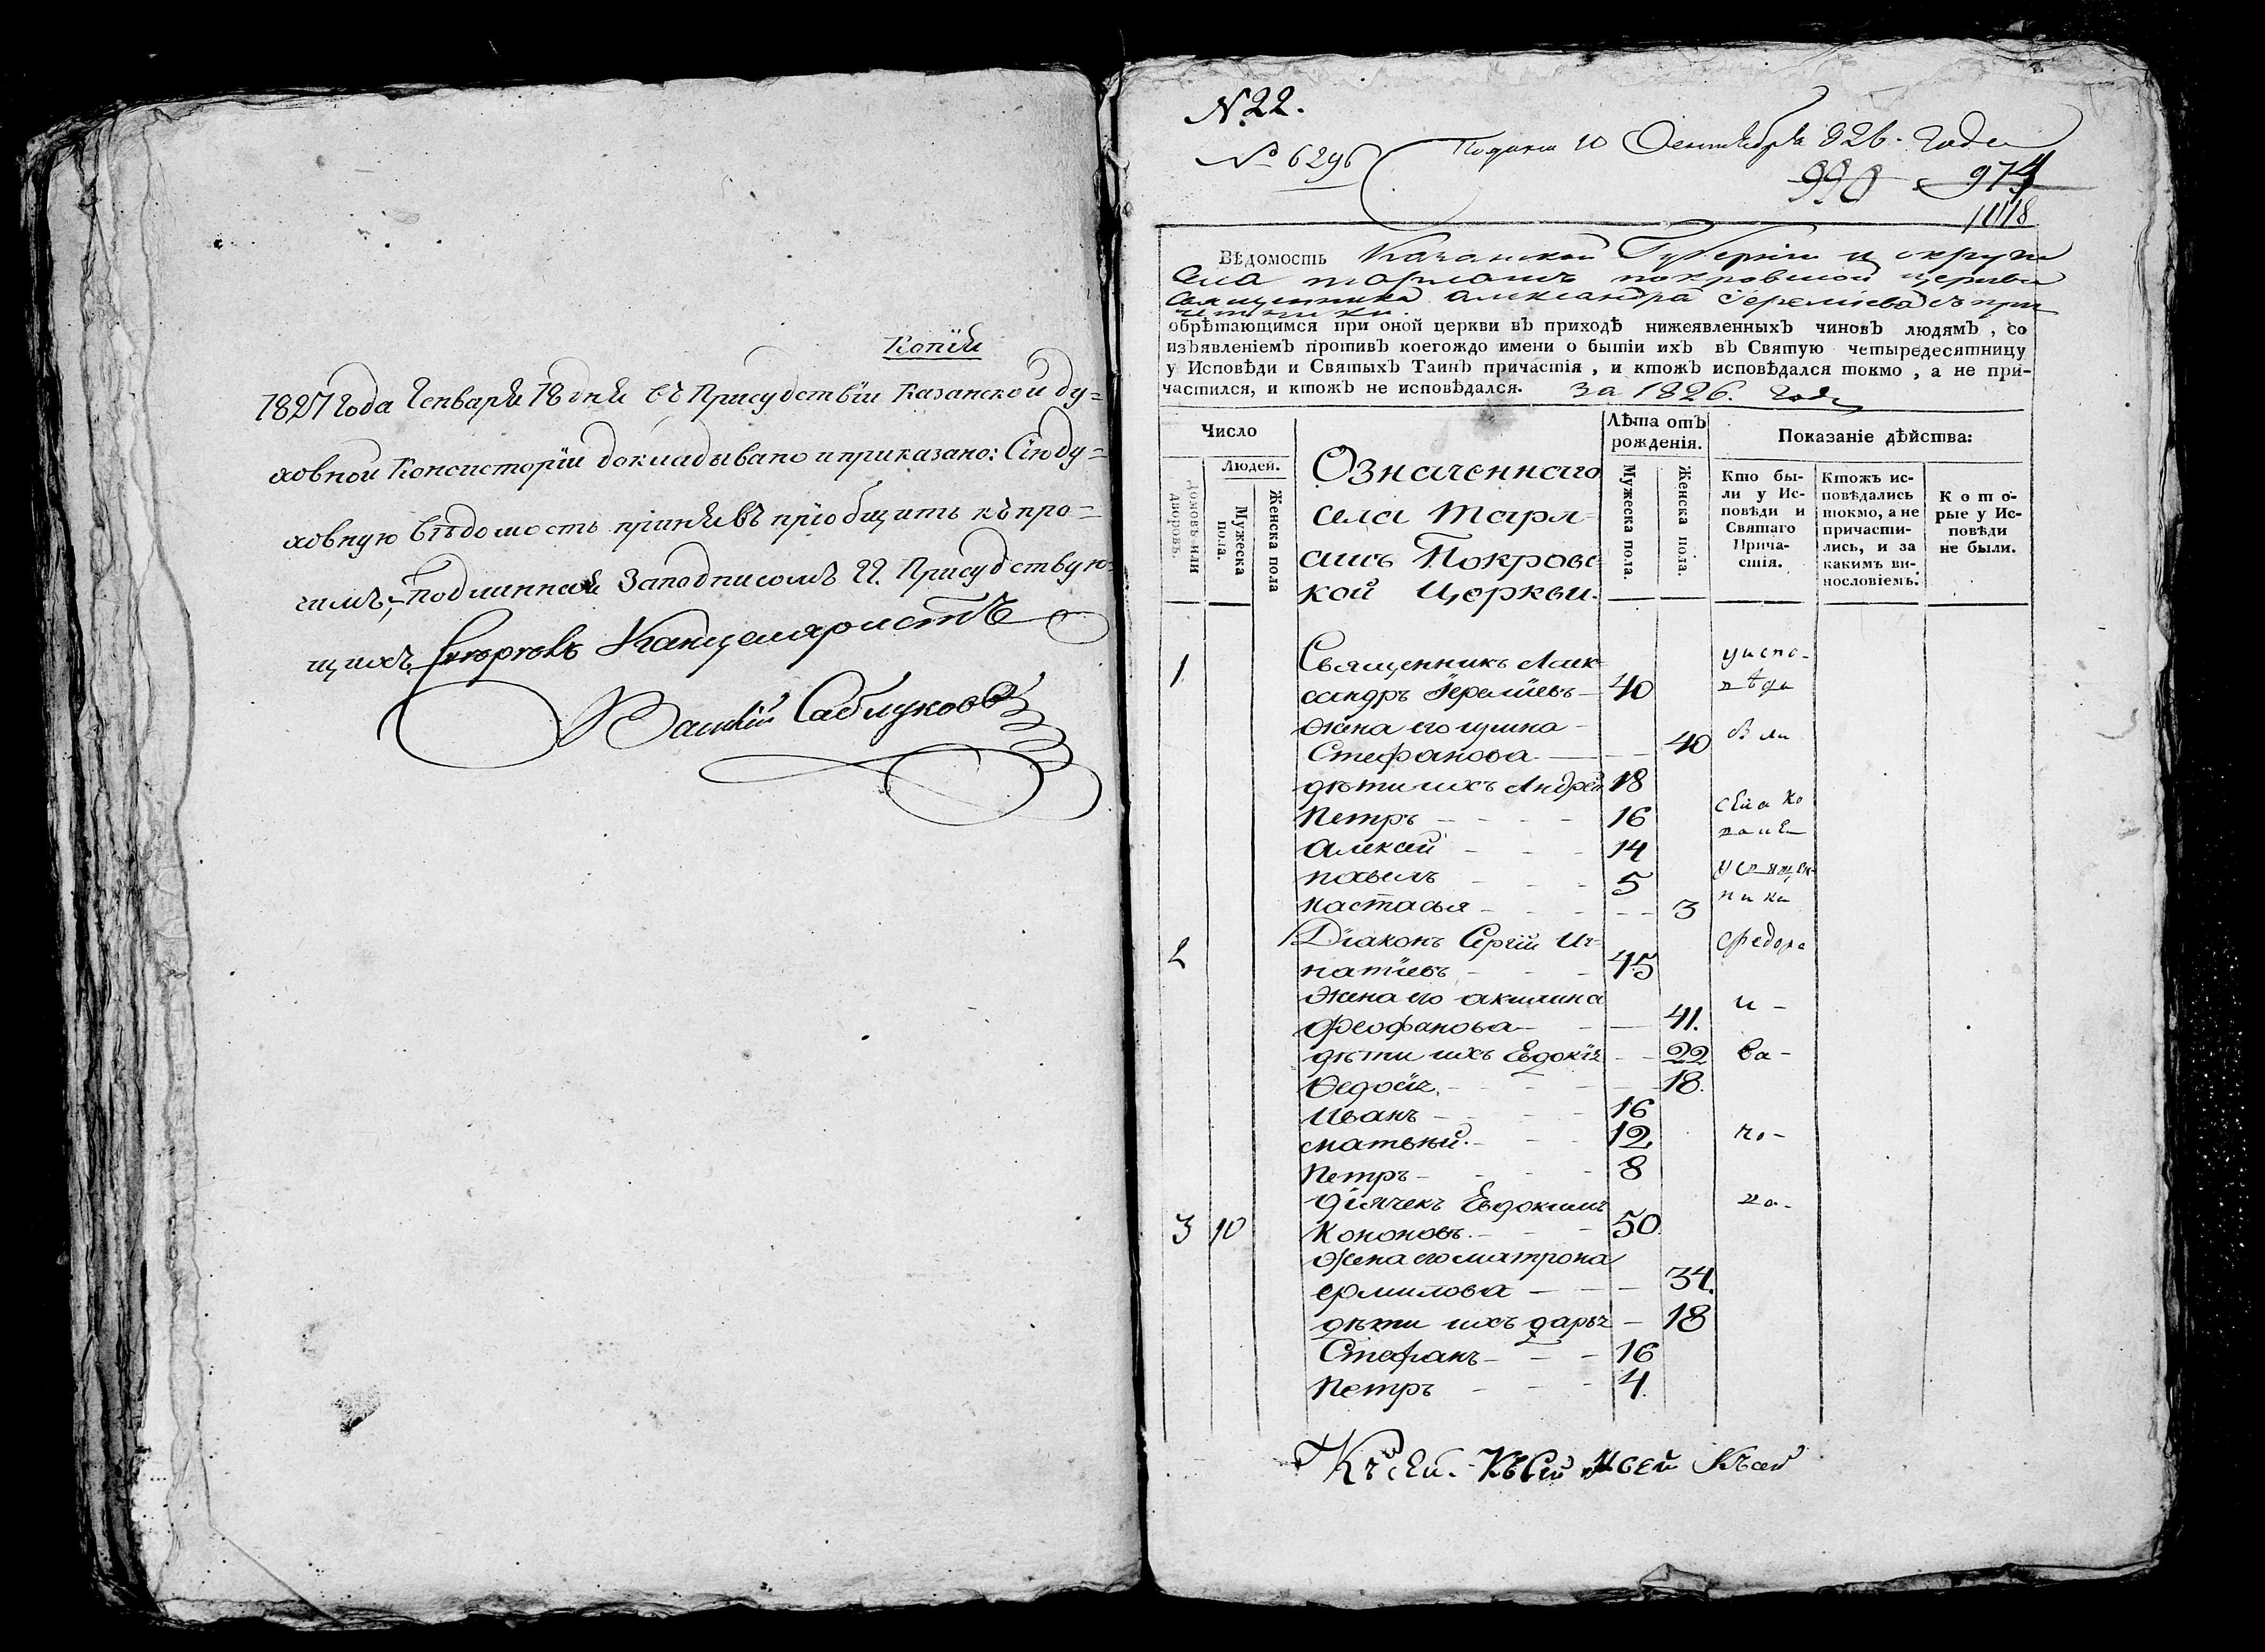 Копія
1827 года Генваря 18 дня въ Присудствіи Казанской ду=
ховной Консисторіи докладывано и приказано: Сію ду=
ховную вѣдомость принявъ пріобщить къ про=
чимъ, Подлинная Заподписомъ ГГ. Присудствую=
щихъ, Канцеляристъ
Василій Саблуковъ
N.22.
№ 6296
Подана 10 Сентября 826. года
990 974
1118
Вѣдомость Казанской Губерніи и округи
села покровской церкви
Священника александра Іереміева съ при
четники.
обрѣтающимся при оной церкви въ приходѣ нижеявленныхъ чиновъ людямъ, со
изъявленіемъ противъ коегождо имени о бытіи ихъ въ Святую четыредесятницу
у Исповѣди и Святыхъ Таинъ причастія, и ктожъ исповѣдался токмо, а не при-
частился, и ктожъ не исповѣдался. за 1826. годъ
Число
Людей.
Домовъ или дворовъ.
Мужеска пола.
Женска пола
Означеннаго
села Тарл=
ашъ Покровс
кой Церкви.
Лѣта отъ рожденія.
Мужеска пола.
Женска пола.
Показаніе дѣйства:
Кто бы-
ли у Ис-
повѣди и
Святаго
Прича-
стія.
Ктожъ ис-
повѣдались
токмо, а не
причасти-
лись, и за
какимъ ви-
нословіемъ.
Кото-
рые у Ис-
повѣди
не были.
1 Священникъ Алек
сандръ Іереміевъ 40
жена его
Стефанова 40
дѣти ихъ Андрей 18
Петръ 16
алексей 14
павелъ 5
настасья 3
2 Діаконъ Сергій Иг=
натіевъ 45
жена его акилина
феофанова 41.
дѣти ихъ Евдокія 22
Ѳедосія 18.
Иванъ 16
матвей. 12
Петръ 8
дьячекъ Евдокимъ
3 10 Кононовъ. 50.
жена его матрона
ермилова 34.
дѣти ихъ дарья 18
Стефанъ 16
Петръ 4.
у испо-
вѣди
были
села
у священ
ника
федора
и -
ва-
но-
ва-
Къ сей Къ сей